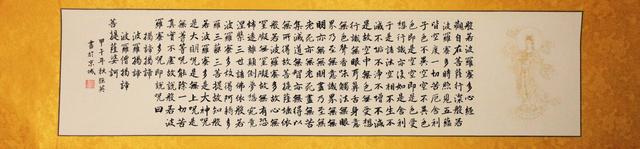 般若波羅蜜多心經
觀自在菩薩行深般若
波羅蜜多時照見五蘊
皆空度一切苦厄舍利
子色不異空空不異色
色即是空空即是色受
想行識亦復如是舍利
子是諸法空相不生不
滅不垢不淨不增不減
是故空中無色無受想
行識無眼耳鼻舌身意
無色聲香味觸法無眼
界乃至無意識界無無
明亦無無明盡乃至無
老死亦無老死盡無苦
集滅道無智亦無得以
無所得故菩提薩埵依
般若波羅蜜多故心無
罣礙無罣礙故無有恐
怖遠離顛倒夢想究竟
涅槃三世諸佛依般若
波羅蜜多故得阿耨多
羅三藐三菩提故知般
若波羅蜜多是大神咒
是大明咒是無上咒是
無等等咒能除一切苦
真實不虛故說般若波
羅蜜多咒即說咒曰
揭諦揭諦
波羅揭諦
波羅僧揭諦
菩提薩婆訶
甲午年秋 英
書於京城